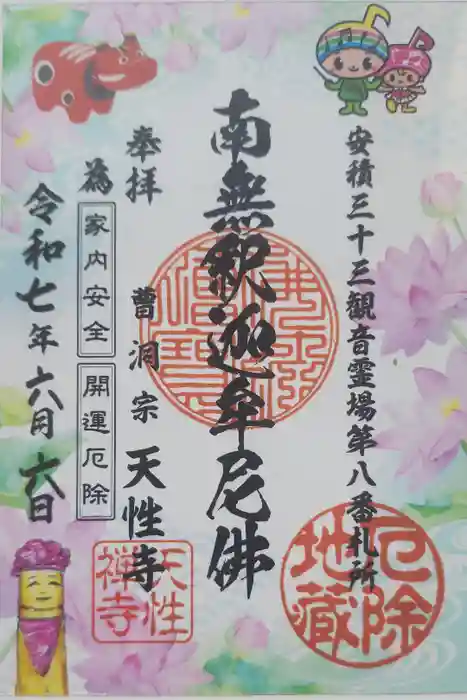 安積三十三観音霊場第八番札所
厄除
地蔵
南無釈迦牟尼佛
佛法僧寶
奉拝
曹洞宗 天性寺
天性
禅寺
為
家内安全
開運厄除
令和七年六月六日